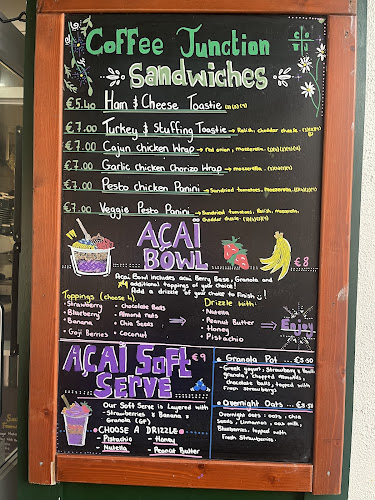 Coffee Junction
C O
J
Sandwiches
€5.40 Ham & Cheese Toastie
€7.00 Turkey & Stuffing Toastie → Relish, cheddar cheese
€7.00 Cajun chicken Wrap → red onion, mozzarella
€7.00 Garlic chicken Chorizo Wrap → mozzarella
€7.00 Pesto chicken Panini → Sundried tomatoes, Mozzarella
€7.00 Veggie Pesto Panini → Sundried tomatoes, Relish, mozzarella,
cheddar cheese
AÇAÍ
BOWL
€8
Acai Bowl includes acai Berry Base, Granola and
x4 additional toppings of your choice!
Add a drizzle of your choice to Finish :!
Toppings (choose 4)
• Strawberry • chocolate Balls
• Blueberry • Almond nuts
• Banana • Chia Seeds
• Goji Berries • Coconut
Drizzle with:
• Nutella
• Peanut Butter
• Honey
• Pistachio
Enjoy
AÇAÍ SOFT €9
SERVE
Our Soft Serve is Layered with
- Strawberries & Banana &
Granola (GF)
• CHOOSE A DRIZZLE
- Pistachio - Honey
- Nutella - Peanut Butter
• Granola Pot ... €5.50
- Greek yogurt, Strawberry & Vanilla
granola, chopped Almonds,
Chocolate balls, topped with
Fresh Strawberrys
• Overnight Oats ... €3.50
Overnight oats : oats, chia
Seeds, Cinnamon, oat milk,
Blueberries, topped with
Fresh Strawberries.